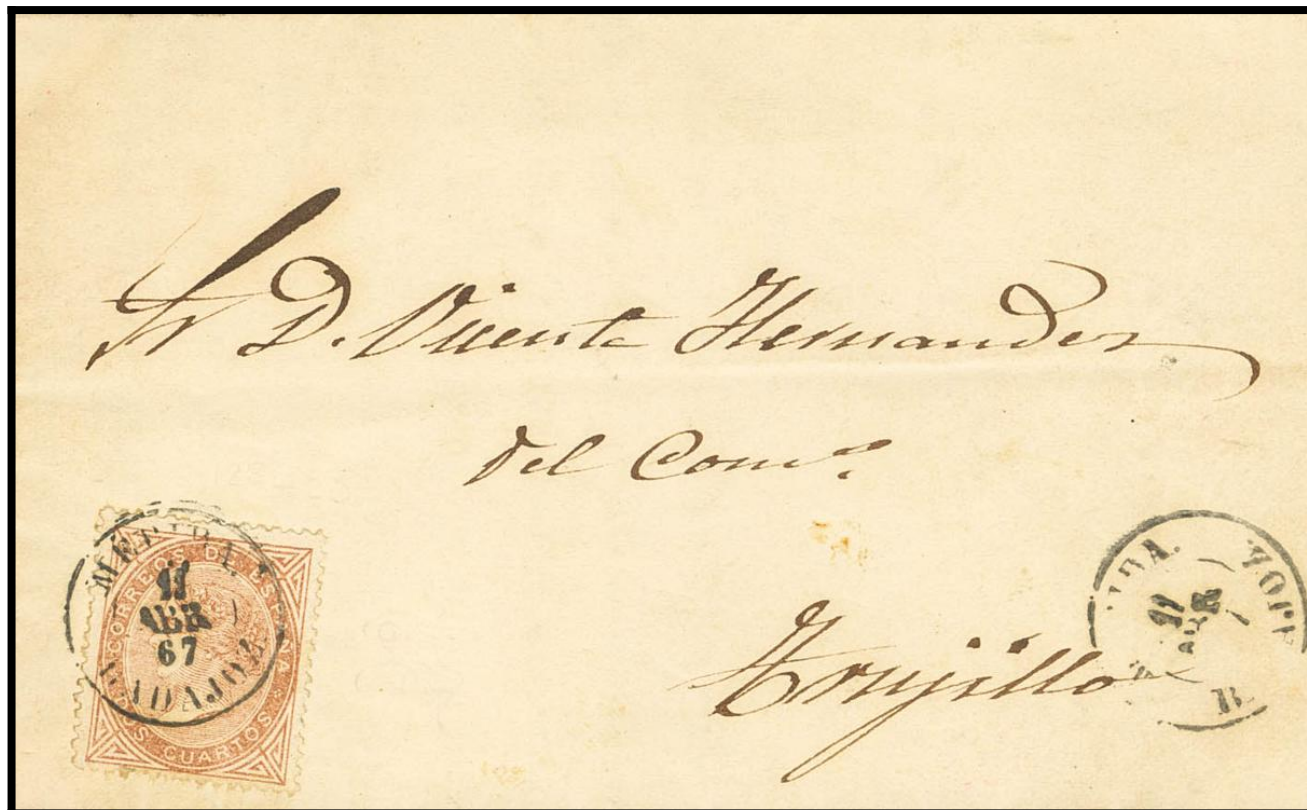 Sr D. Vicente Hernandez
del Comº
Trujillo
MÉRIDA
11
ABR
67
BADAJOZ
CORREOS DE ESPAÑA
DOS CUARTOS
11
ABR